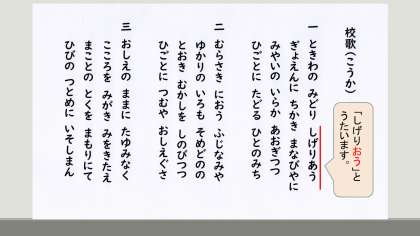 校歌(こうか)
一 ときわの みどり しげりあう
ぎょえんに ちかき まなびやに
みやいの いらか あおぎつつ
ひごとに たどる ひとのみち
二 むらさき におう ふじなみや
ゆかりの いろも そめどのの
とおき むかしを しのびつつ
ひごとに つむや おしえぐさ
三 おしえの ままに たゆみなく
こころを みがき みをきたえ
まことの とくを まもりにて
ひびの つとめに いそしまん
「しげりおう」と
うたいます。